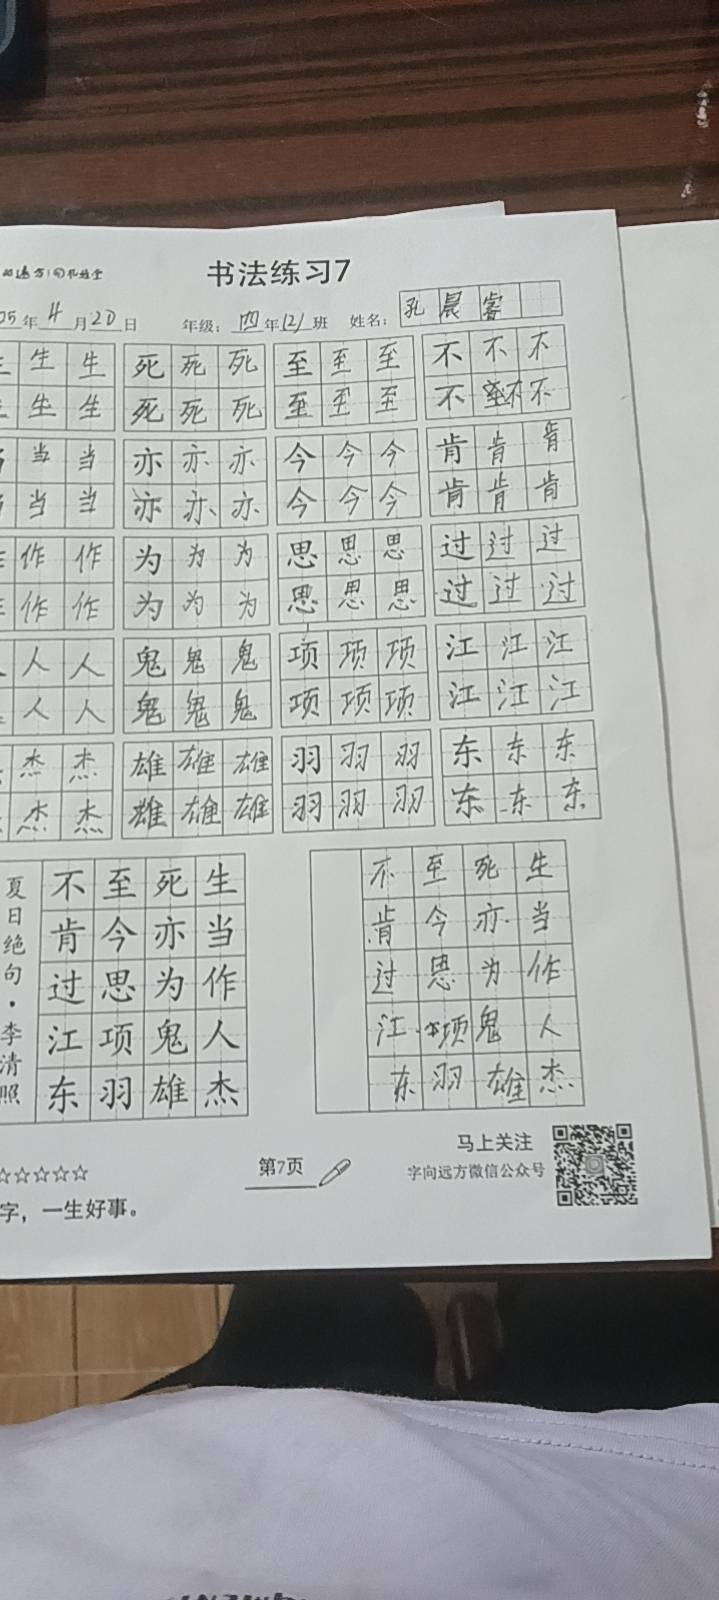 书法练习7
05年4月20日 年级：四年12班 姓名：孔晨睿
生 生 死 死 死 至 至 至 不 不 不
生 生 死 死 死 至 至 至 不 不 不
当 当 亦 亦 亦 今 今 今 肯 肯 肯
当 当 亦 亦 亦 今 今 今 肯 肯 肯
作 作 为 为 为 思 思 思 过 过 过
作 作 为 为 为 思 思 思 过 过 过
人 人 鬼 鬼 鬼 项 项 项 江 江 江
人 人 鬼 鬼 鬼 项 项 项 江 江 江
杰 杰 雄 雄 雄 羽 羽 羽 东 东 东
杰 杰 雄 雄 雄 羽 羽 羽 东 东 东
夏日绝句·李清照
生当作人杰
死亦为鬼雄
至今思项羽
不肯过江东
生当作人杰
死亦为鬼雄
至今思项羽
不肯过江东
☆☆☆☆☆
第7页
字，一生好事。
马上关注
字向远方微信公众号